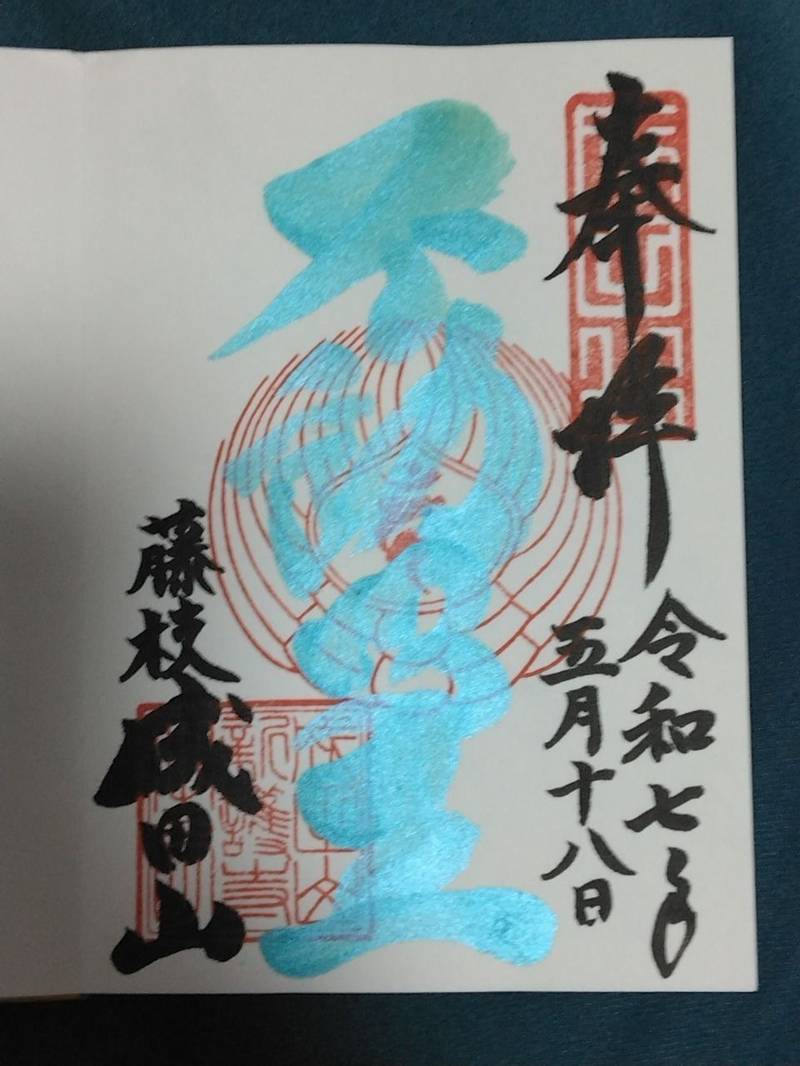 奉拝
令和七年
五月十八日
不動尊
藤枝成田山